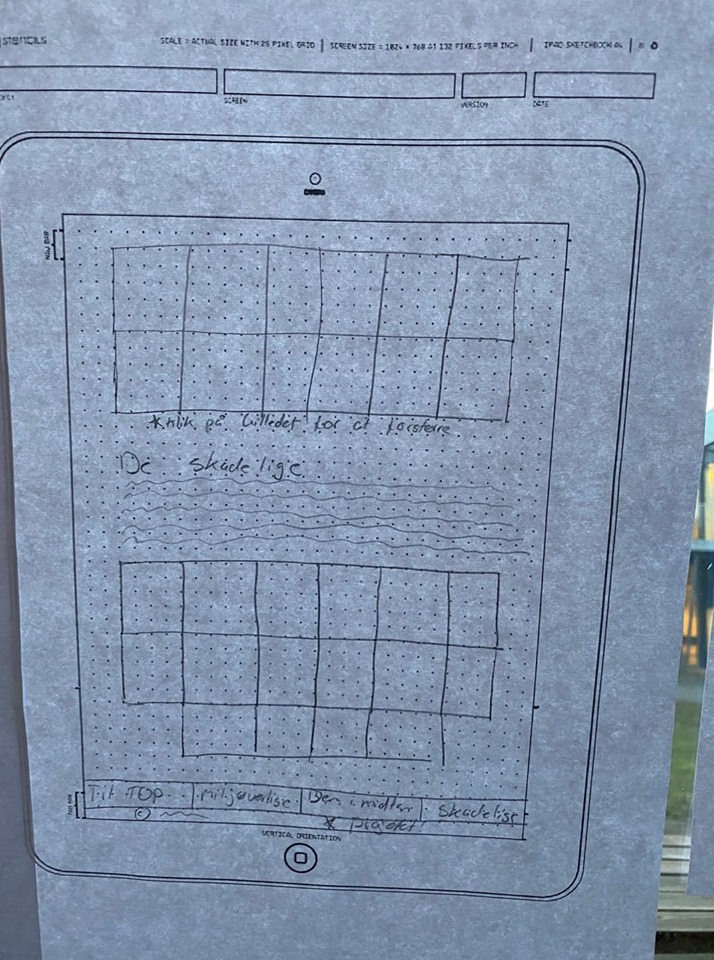 stencils
SCALE = ACTUAL SIZE WITH 25 PIXEL GRID | SCREEN SIZE = 1024 × 768 AT 132 PIXELS PER INCH | IPAD SKETCHBOOK
SCREEN
VERSION
DATE
CAMERA
NAV BAR
*Klik på billedet for at forstørre
De skadelige
Til TOP
miljøvenlige
Den i midten
skadelige
©
* projekt!
TAB BAR
VERTICAL ORIENTATION